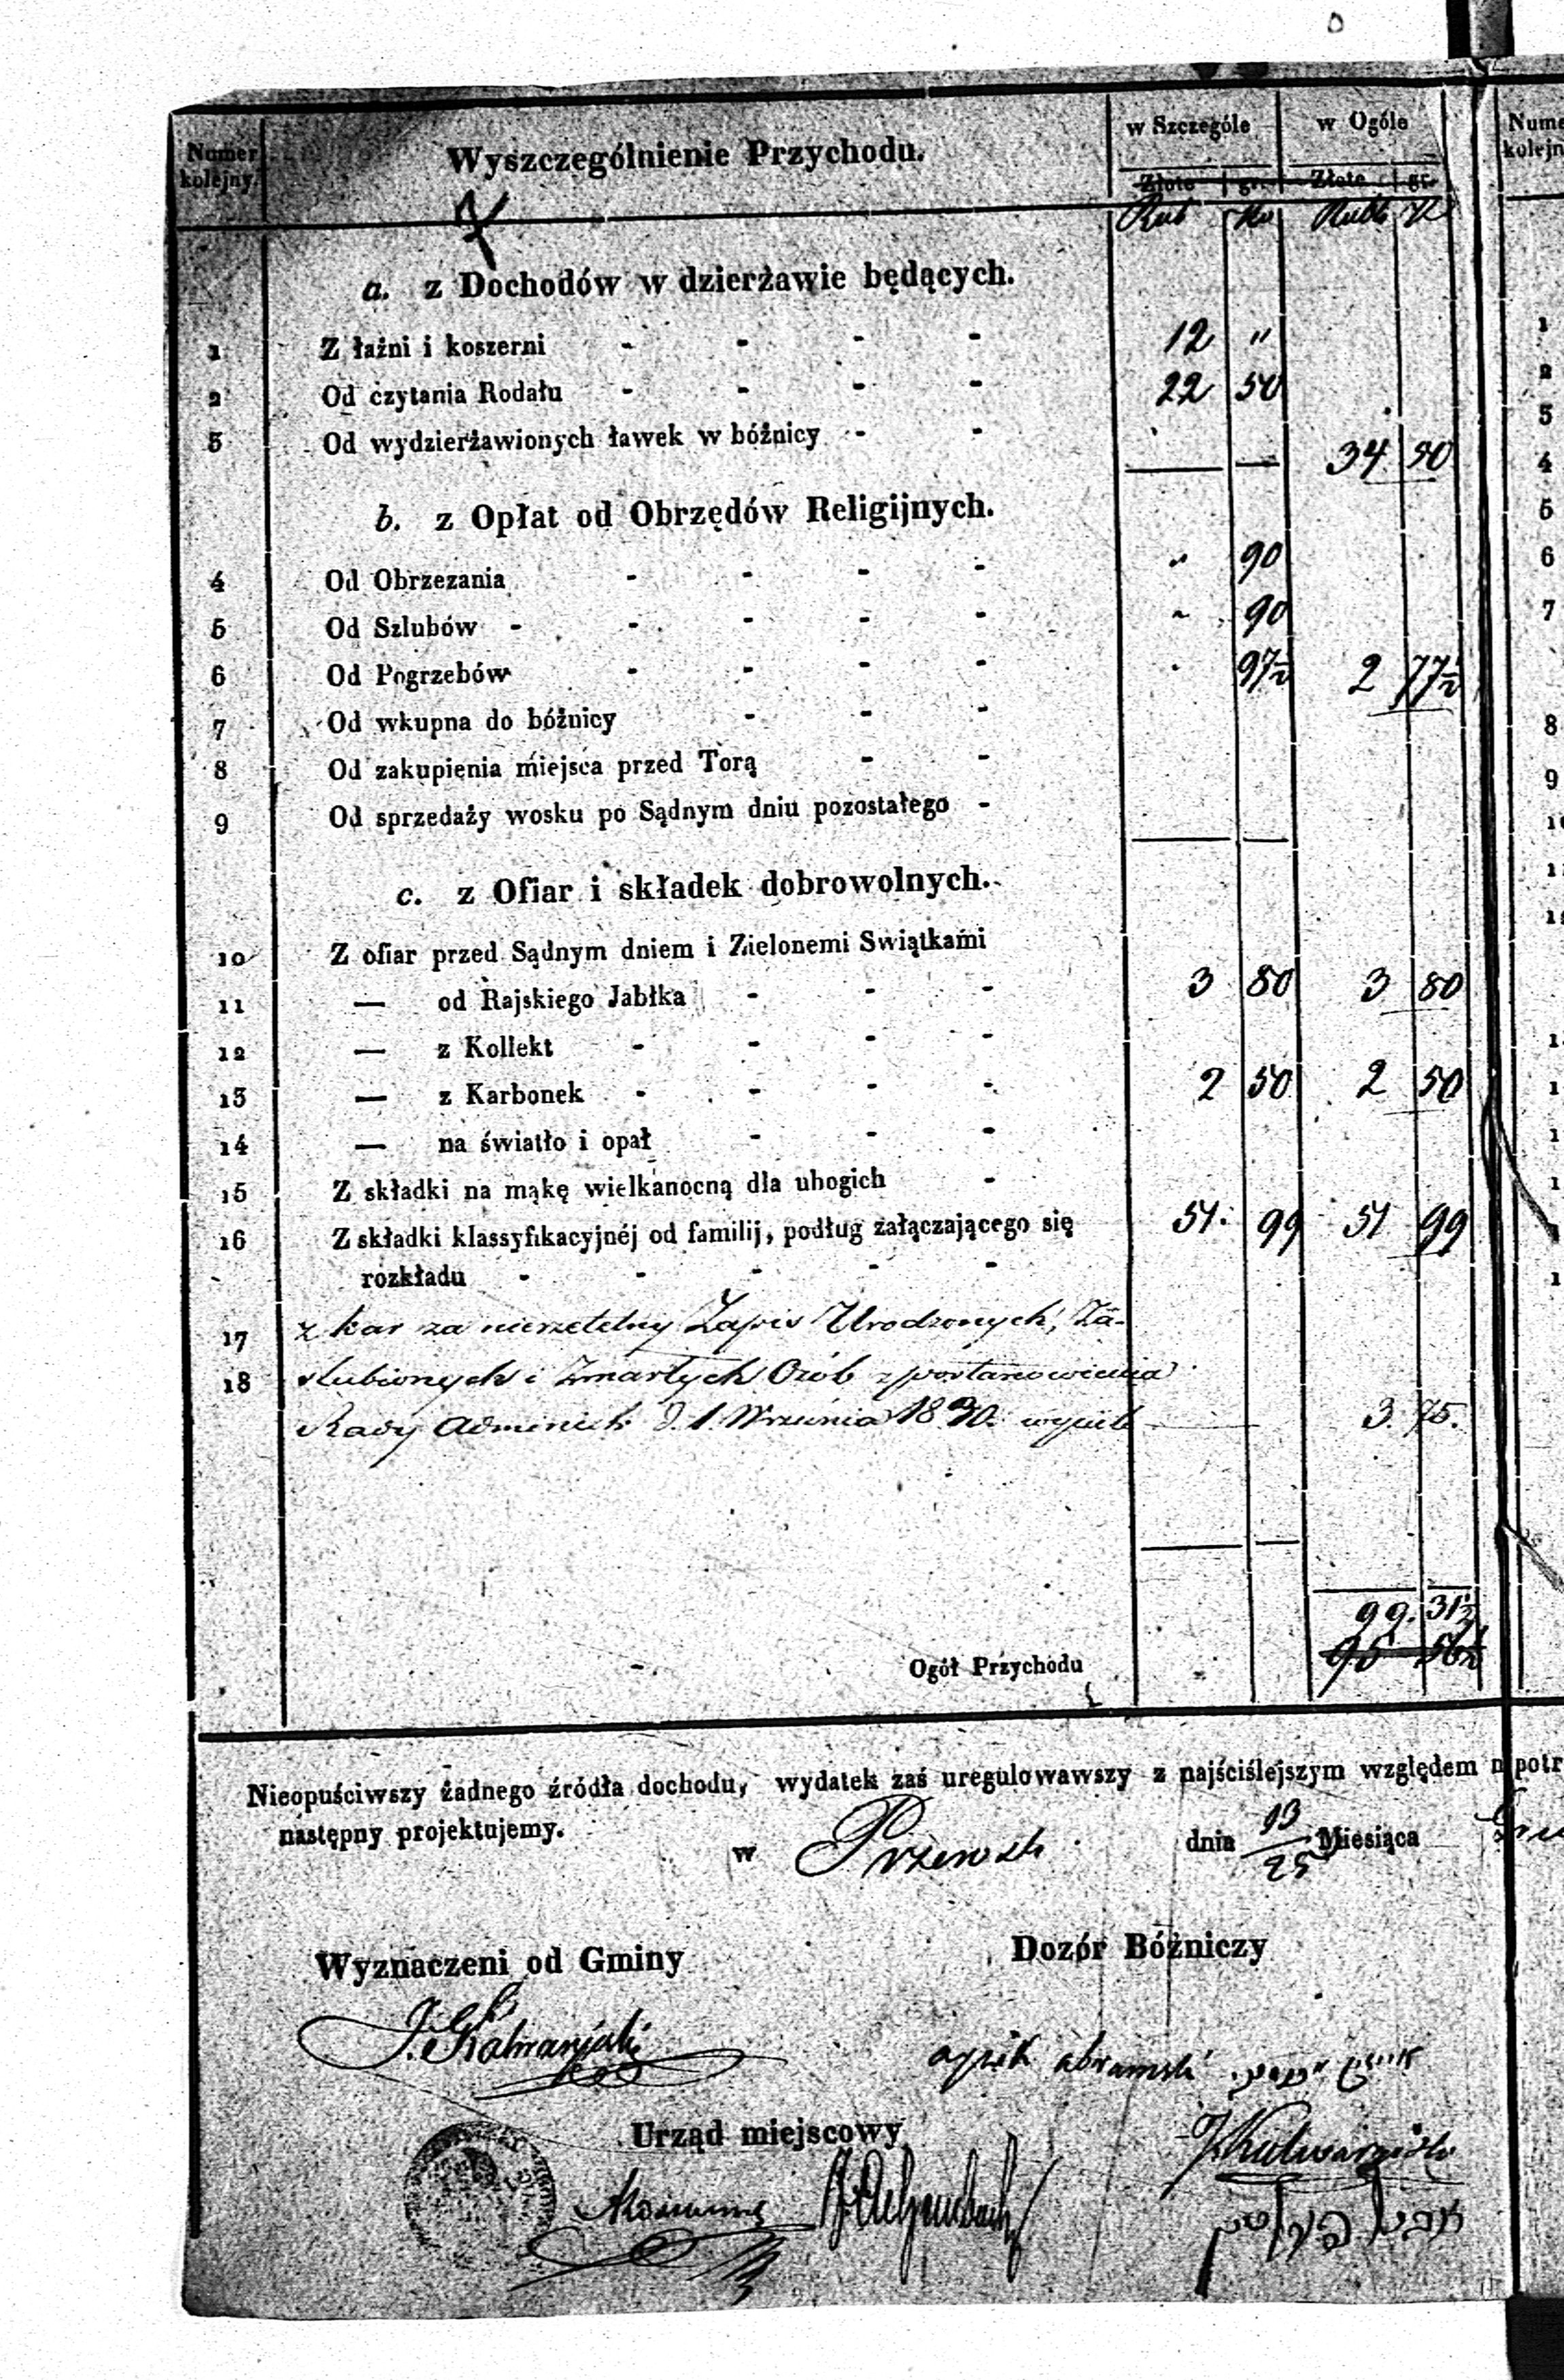 Numer kolejny.
Wyszczególnienie Przychodu.
w Szczególe
w Ogóle
Złote gr. Złote gr.
Rub Ko Rubli K
a. z Dochodów w dzierżawie będących.
1 Z łaźni i koszerni - - - - 12 "
2 Od czytania Rodału - - - - 22 50
3 Od wydzierżawionych ławek w bóżnicy - - 34 50
b. z Opłat od Obrzędów Religijnych.
4 Od Obrzezania - - - - " 90
5 Od Szlubów - - - - - " 90
6 Od Pogrzebów - - - - 97½ 2 77½
7 Od wkupna do bóżnicy - - -
8 Od zakupienia miejsca przed Torą - -
9 Od sprzedaży wosku po Sądnym dniu pozostałego -
c. z Ofiar i składek dobrowolnych.
10 Z ofiar przed Sądnym dniem i Zielonemi Swiątkami
11 — od Rajskiego Jabłka - - - 3 80 3 80
12 — z Kollekt - - - -
13 — z Karbonek - - - - 2 50 2 50
14 — na światło i opał - - -
15 Z składki na mąkę wielkanocną dla ubogich -
16 Z składki klassyfikacyjnéj od familij, podług załączającego się 51. 99 51 99
rozkładu - - - - -
17 z kar za nierzetelny Zapis Urodzonych, Za-
18 slubionych i Zmarłych Osób z postanowienia
Rady Administr. d. 1. Września 1830. 3. 75.
99. 31½
Ogół Przychodu 95 56½
Nieopuściwszy żadnego źródła dochodu, wydatek zaś uregulowawszy z najściślejszym względem n potr
następny projektujemy.
w dnia 13/25 Miesiąca
Wyznaczeni od Gminy
Dozór Bóżniczy
abramski
Urząd miejscowy
Numer kolejn
1
2
3
4
5
6
7
8
9